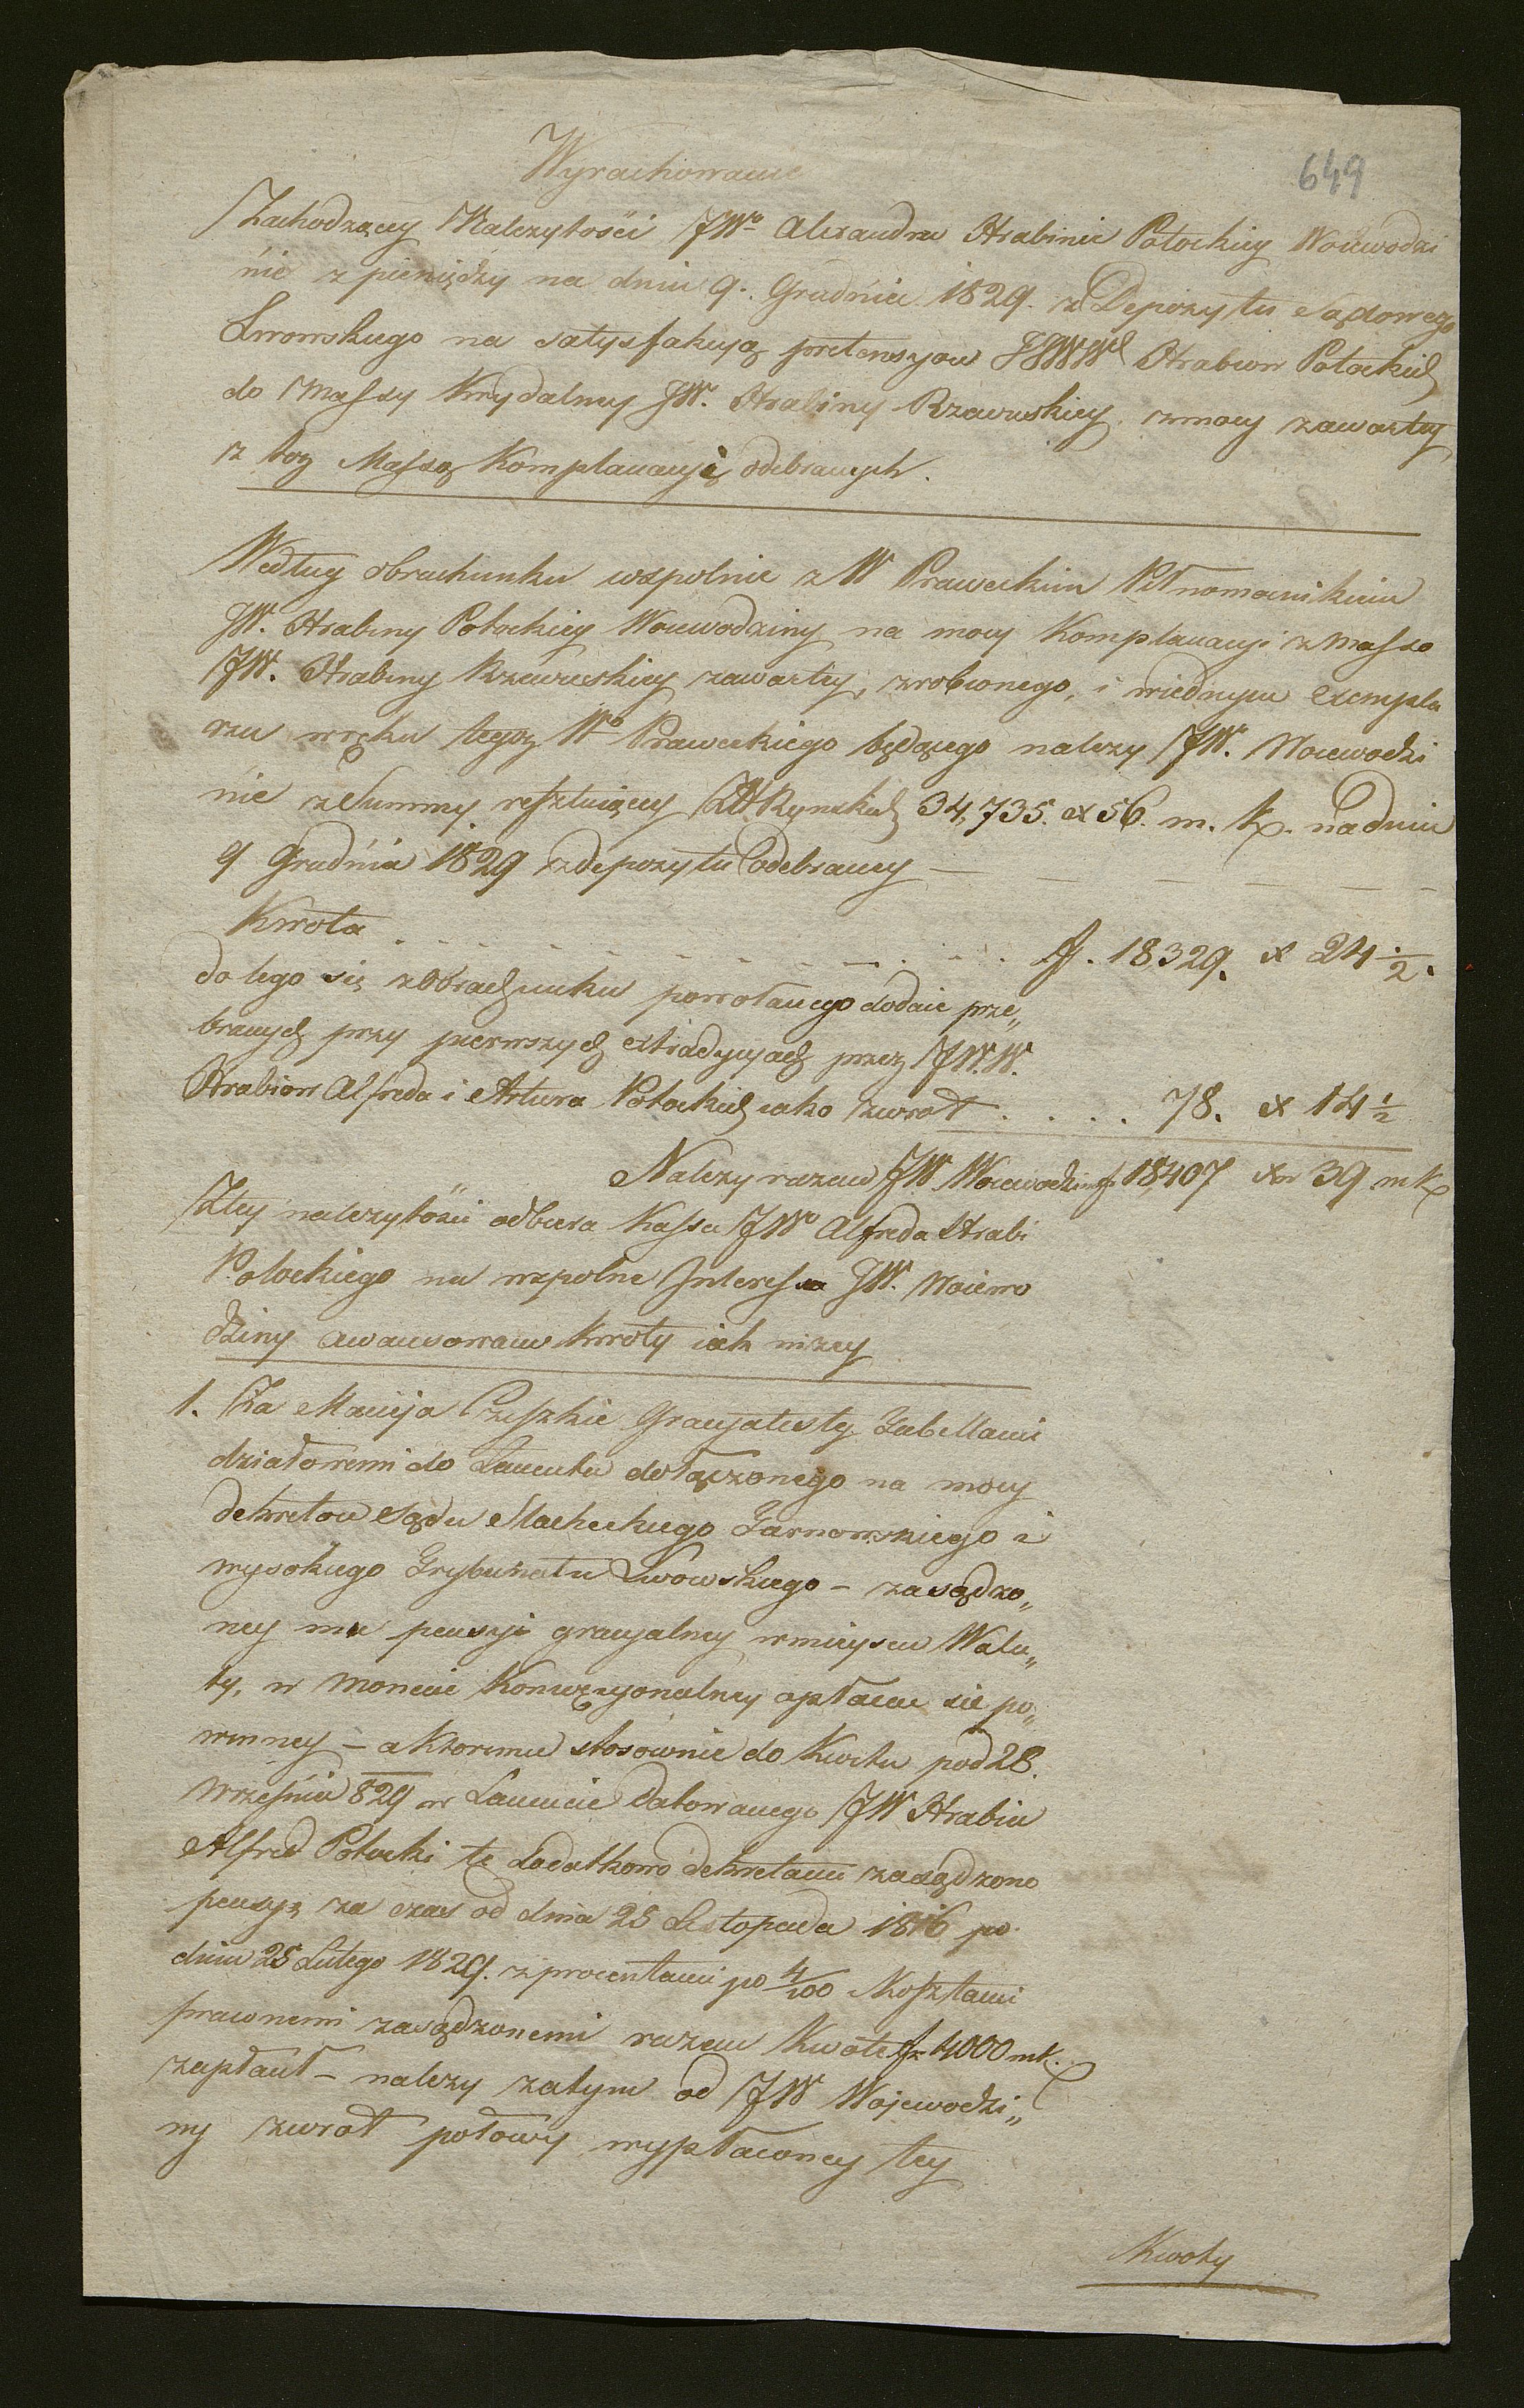 Wyrachowanie
649
Zachodzącey Należytości JWo Alexandrze Hrabinie Potockiey Woiewodzi
nie z pieniędzy na dniu 9. Grudnia 1829. z Depozytu Sądowego
Lwowskiego na satysfakcyą pretensyow JJWWch Hrabiow Potockich
do Massy Krydalney JW. Hrabiny Rzewuskiey z mocy zawartey
z tąż Massą Komplanacyi odebranych.
Według obrachunku wspolnie z W Praweckim Pełnomocnikiem
JW. Hrabiny Potockiey Woiewodziny na mocy Komplanacyi z Masso
JW. Hrabiny Rzewuskiey zawartey, zrobionego, i w iednym exempla
rzu w ręku tegoz Wo Praweckiego będącego nalezy JW. Woiewodzi
nie z Summy resztuiącey ZłRynskich 34,735. x 56. m. k. na dniu
9 Grudnia 1829 z depozytu odebraney — — — — —
Kwota . . . . . . . . . . f. 18,329. x 24 1/2.
do tego się z Obrachunku powołanego dodaie prze„
branych przy pierwszych extradycyach przez JW.W.
Hrabiow Alfreda i Artura Potockich iako zwrot . . . . 78. x 14 1/2
Nalezy razem JW Woiewodzinie f 18,407 xr 39 mk
Z tey należytości odbiera Kassa JWo Alfreda Hrabi
Potockiego na wspolne Interessa JW. Woiewo
dziny awansowane kwoty iak niżey
1. Za Macieja Przeszkie Gracyalisty Gubellami
działowemi do Łancuta dołączonego na mocy
dekretow Sądu Szlacheckiego Tarnowskiego i
wysokiego Trybunału Lwowskiego – zasądzo„
ney mu pensyi gracyalney w mieyscu Walu„
ty, w Monecie Konwencyonalney opłacac sie po„
winney – a ktoremu stosownie do Kwitu pod 28.
Września 829 w Łancucie datowanego JW Hrabia
Alfred Potocki tę dodatkowo dekretami zasądzono
pensyą za czas od dnia 25 Listopada 1816 po
dniu 25 Lutego 1829. z procentami po 4/100 Kosztami
prawnemi zasądzonemi razem Kwotę f 4000 mk.
zapłacił – nalezy zatym od JW Wojewodzi„
ny zwrot połowy wypłaconey tey
Kwoty